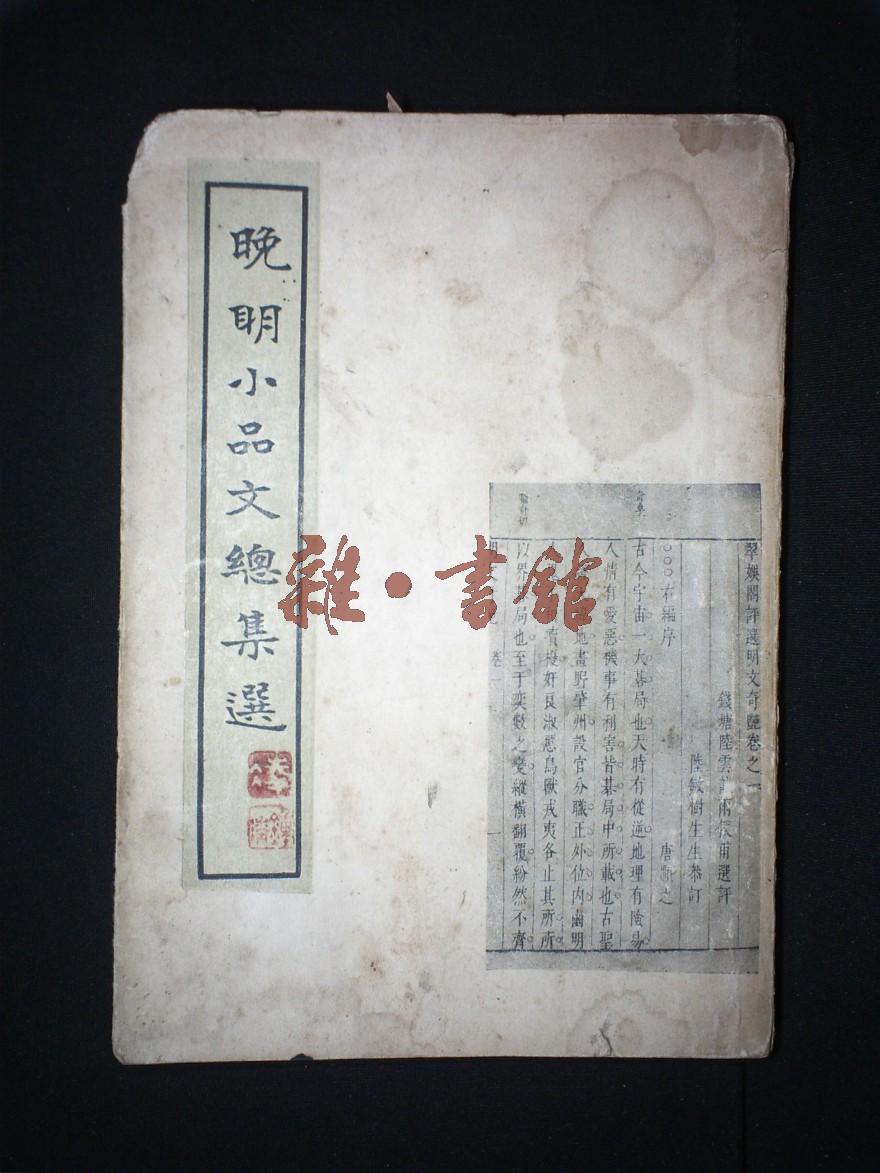 晚明小品文總集選
雜·書館
翠娛閣評選明文奇艷卷之一
錢塘陸雲龍雨侯甫選評
陸敏樹生生恭訂
○○○右編序
唐順之
古今宇宙一大碁局也天時有從逆地理有險易
人情有愛惡機事有利害皆碁局中所載也古聖
地畫野肇州設官分職正外位內幽明
奸良淑慝鳥獸戎夷各止其所所
以界碁局也至于奕數之變縱橫翻覆紛然不齊
卷一